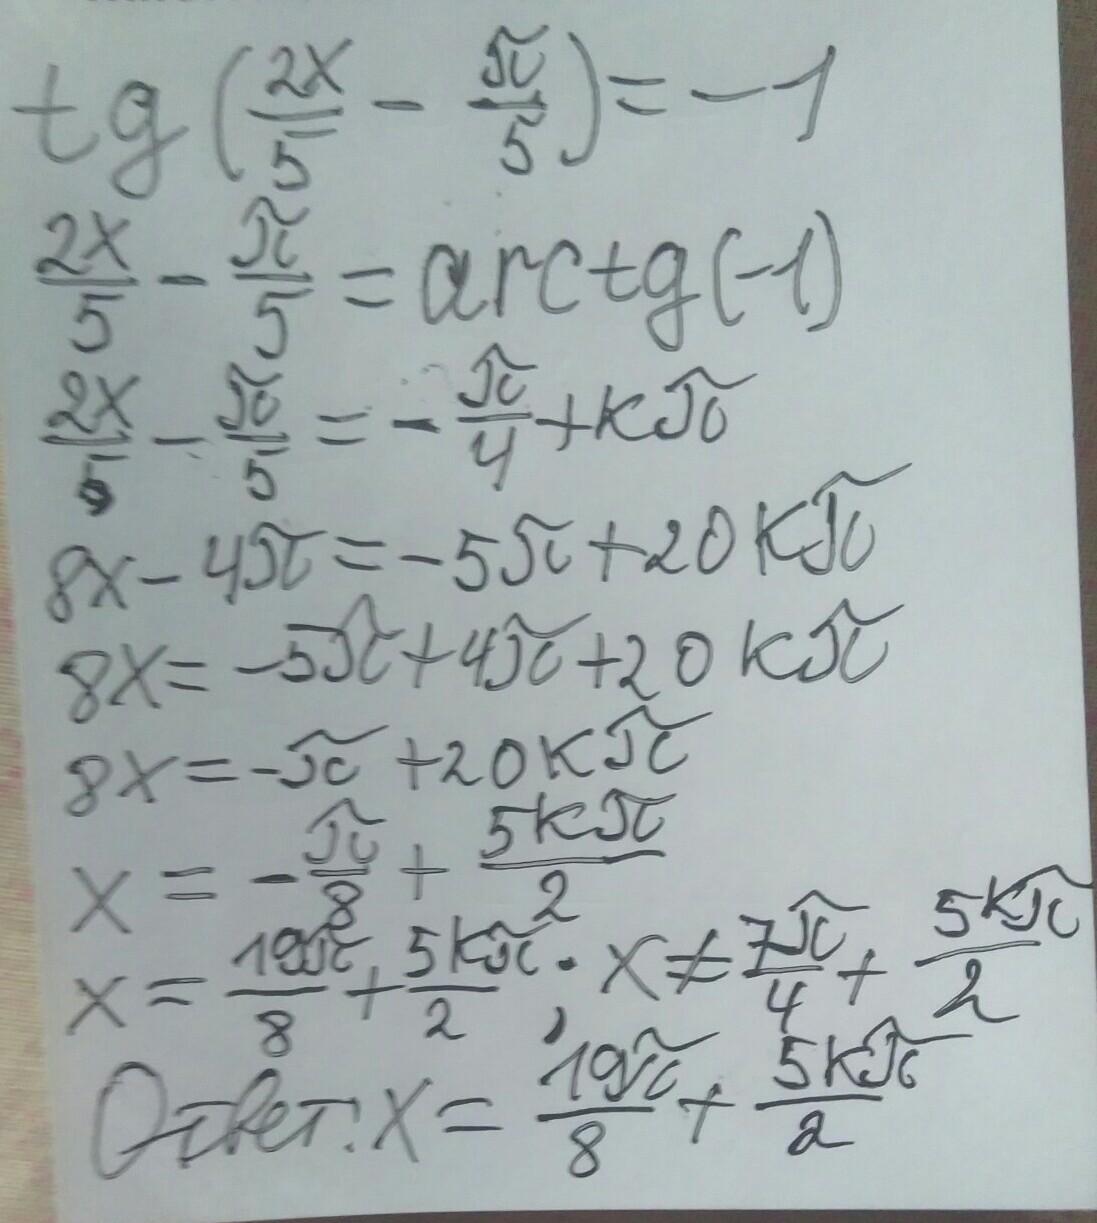 tg(2x/5 - π/5) = -1
2x/5 - π/5 = arctg(-1)
2x/5 - π/5 = -π/4 + kπ
8x - 4π = -5π + 20kπ
8x = -5π + 4π + 20kπ
8x = -π + 20kπ
x = -π/8 + 5kπ/2
x = 19π/8 + 5kπ/2; x ≠ 7π/4 + 5kπ/2
Ответ: x = 19π/8 + 5kπ/2